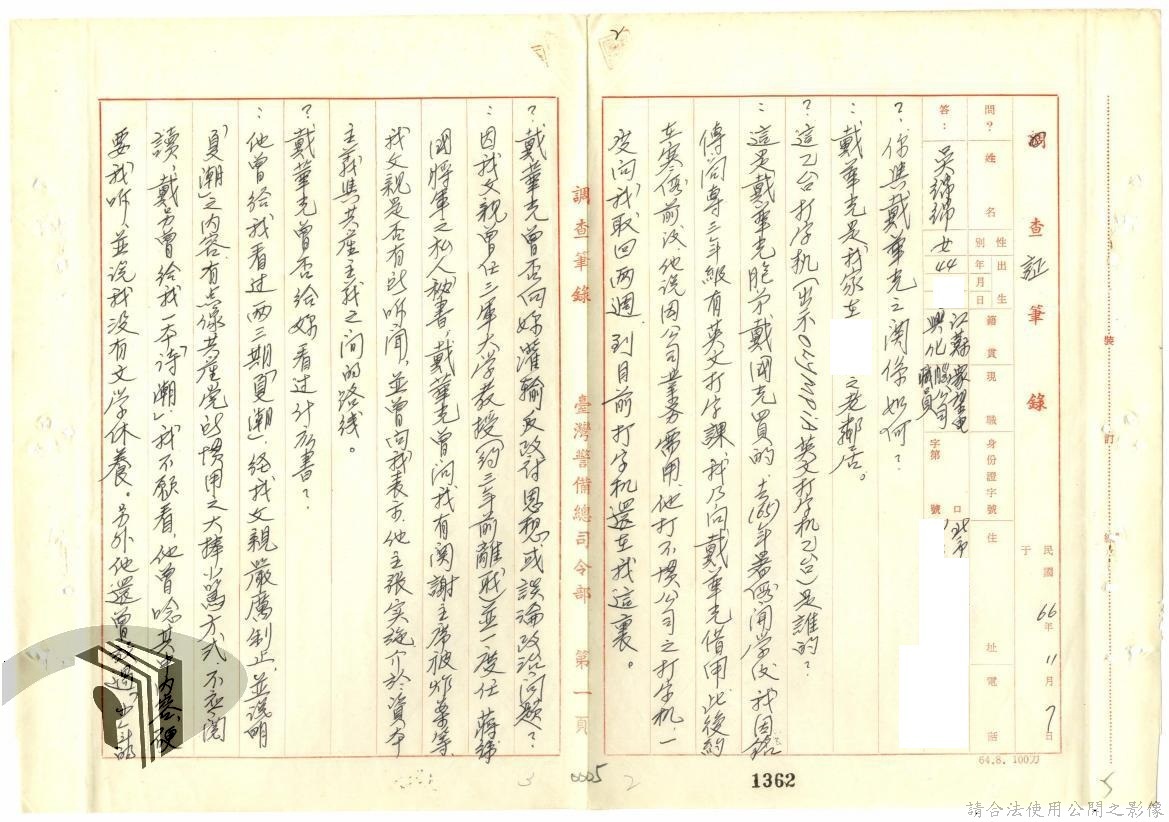 調查証筆錄
民國66年11月7日
于
問？
答：
姓名
性別
出生年月日
籍貫
現職
身份證字號
住址
電話
吳綿綿
女
44
江蘇興化
職員
字第
號
口
北市
？你與戴華克之関係如何？
：戴華克是我家在
之老鄰居。
？這乙台打字机（出示OLYMPIA英文打字机乙台）是誰的？
：這是戴華克胞弟戴國克買的，去(65)年暑假開学後我因銘
傳商專三年級有英文打字課，我乃向戴華克借用，此後約
在寒假前後，他說因公司業務需用，他打不慣公司之打字机，一
度向我取回兩週，到目前打字机還在我這裏。
裝訂線
64.8. 100刀
1362
調查筆錄
臺灣警備總司令部
第一頁
？戴華克曾否向妳灌輸反政府思想或談論政治问题？
：因我父親曾任三軍大学教授（約三年前離职）並一度任蔣緯
國將軍之私人秘書，戴華克曾问我有関謝主席被炸案等，
我父親是否有所听聞，並曾向我表示，他主張实施介於資本
主義與共産主義之间的路线。
？戴華克曾否給妳看过什広書？
：他曾给我看过两三期「夏潮」，经我父親嚴厲制止，並說明
「夏潮」之内容，有点像共産党所慣用之大捧小罵方式，不要閱
讀，戴另曾给我一本「詩潮」，我不願看，他曾唸其中内容，硬
要我听，並说我没有文学休養。另外他還曾
0005
2
3
請合法使用公開之影像